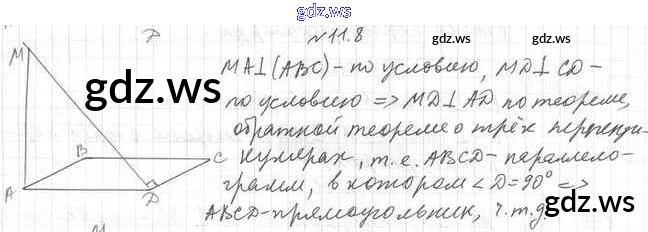 gdz.ws
№11.8
gdz.ws
gdz.ws
MA⊥(ABC) - по условию, MD⊥CD -
по условию => MD⊥AD по теореме,
обратной теореме о трёх перпенди-
кулярах, т.е. ABCD - параллело-
грамм, в котором ∠D=90° =>
ABCD - прямоугольник, ч.т.д.
gdz.ws
gdz.ws
M
B
C
A
D
M